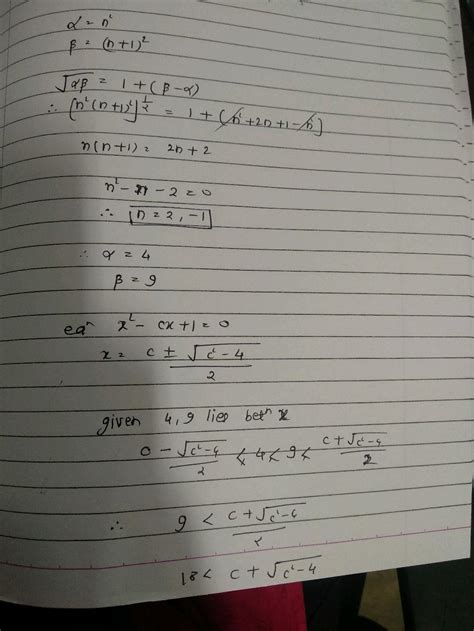 α = n²
β = (n+1)²
√αβ = 1 + (β-α)
∴ [n²(n+1)²]^½ = 1 + (n² + 2n + 1 - n²]
n(n+1) = 2n + 2
n² - n - 2 = 0
∴ n = 2, -1
∴ α = 4
β = 9
eqⁿ x² - cx + 1 = 0
x = c ± √c² - 4 / 2
given 4, 9 lies betⁿ x
c - √c² - 4 / 2 < 4 < 9 < c + √c² - 4 / 2
∴ 9 < c + √c² - 4 / 2
18 < c + √c² - 4